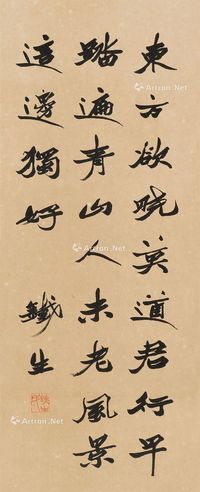 東方欲晓莫道君行早
踏遍青山人未老風景
這邊獨好 鐵生
Artron.Net
Artron.Net
Artron.Net